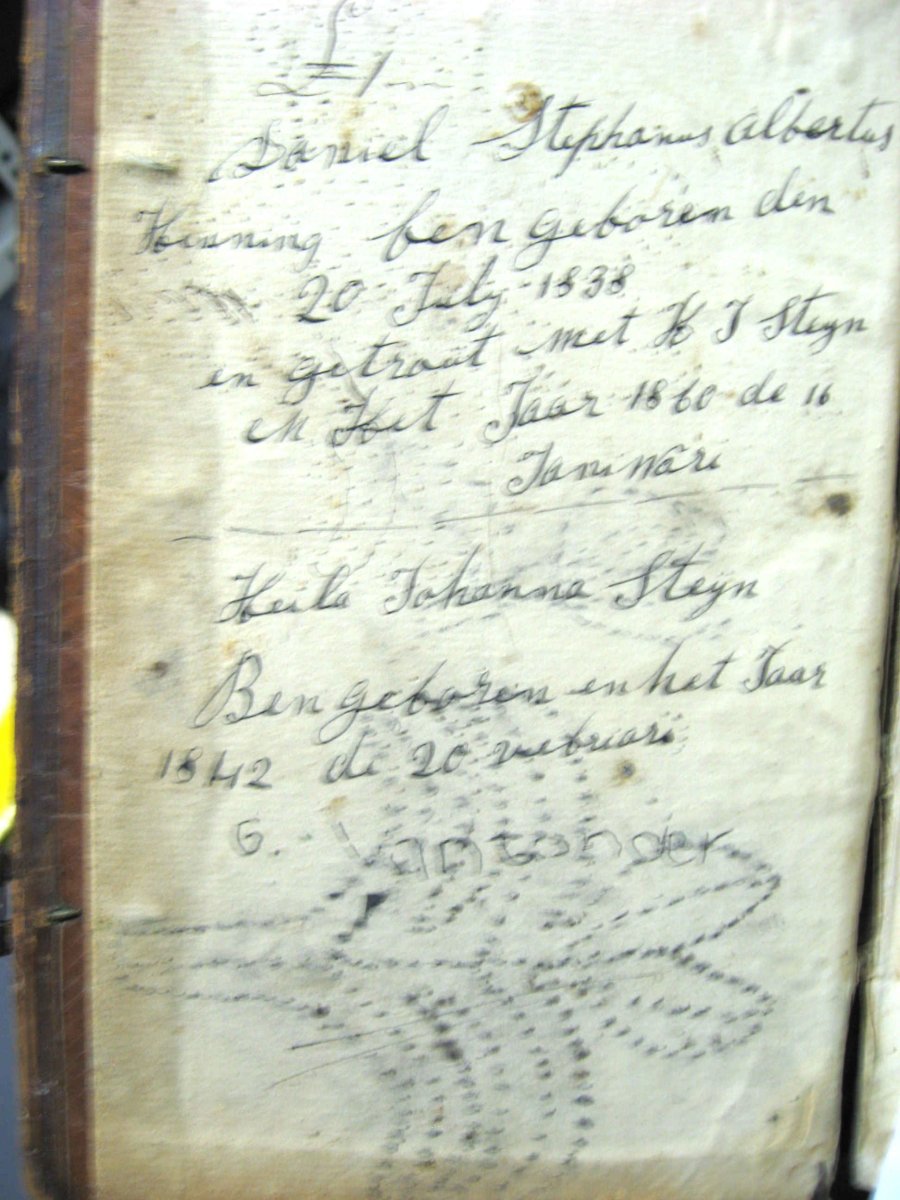 £1
Daniel Stephanus Albertus
Henning ben geboren den
20 July 1838
en getroat met H J Steyn
en Het Jaar 1860 de 16
Januwari
Heila Johanna Steyn
Ben geboren en het Jaar
1842 de 20 viebruari
G. Vantonder